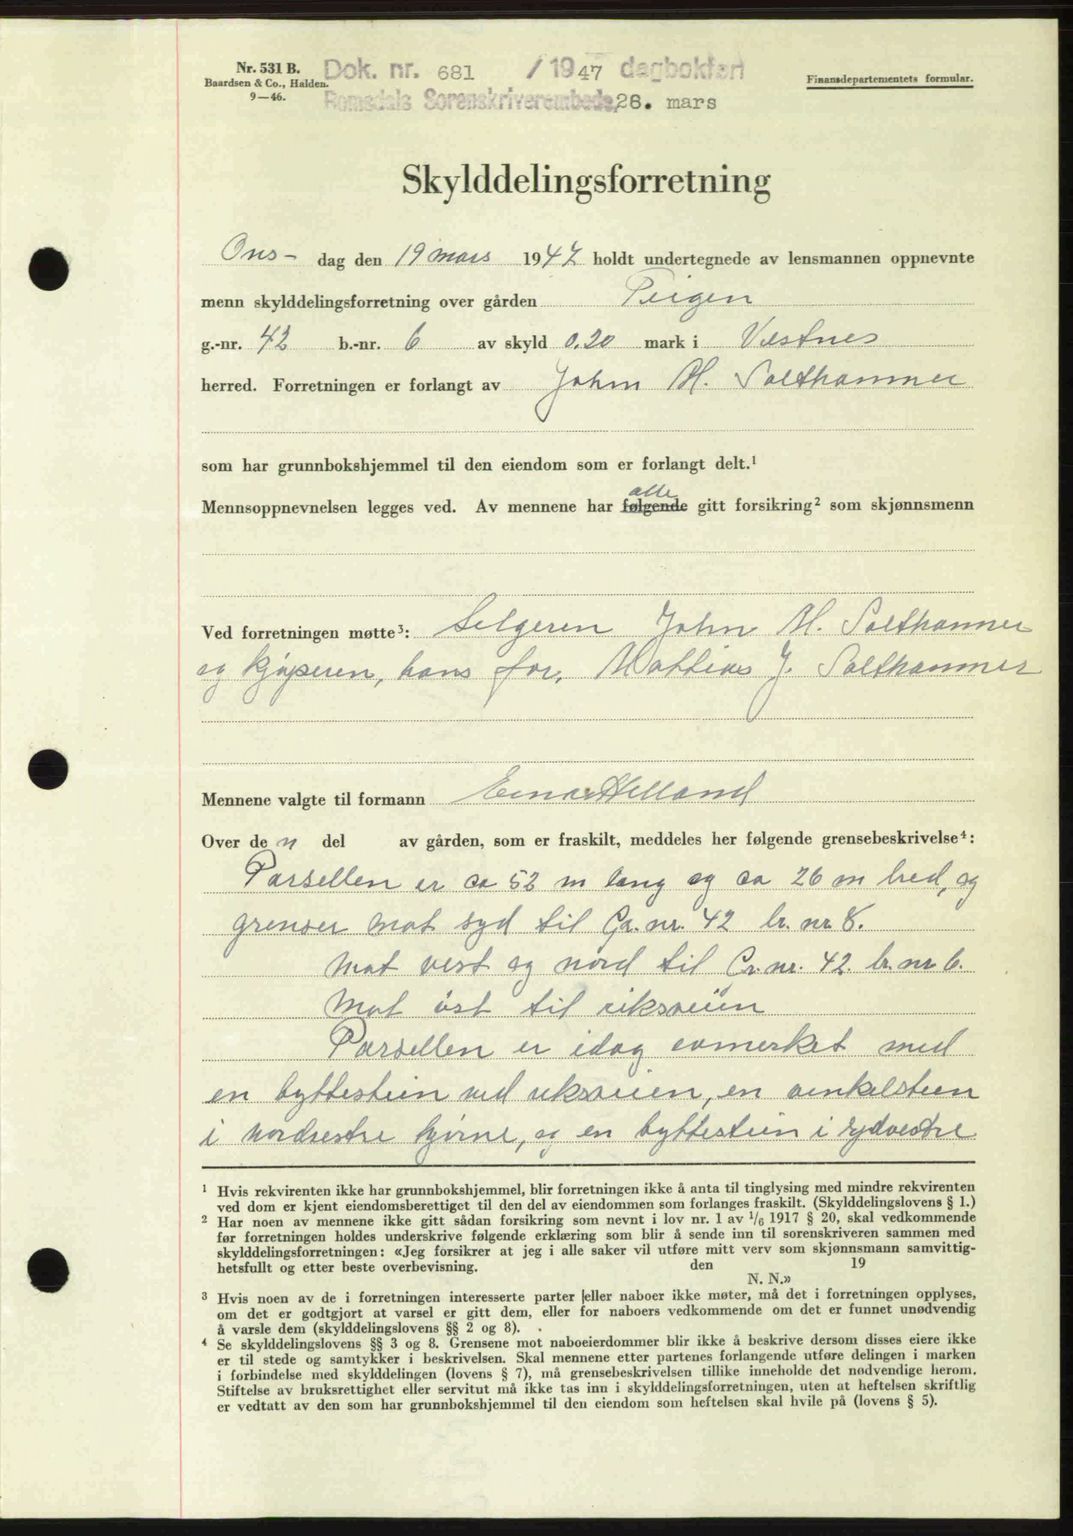 Nr. 531 B.
Baardsen & Co., Halden.
9—46.
Dok. nr. 681 / 1947 dagbokført
Romsdals Sorenskriverembede, 28. mars
Finansdepartementets formular.
Skylddelingsforretning
Ons- dag den 19 mars 1947 holdt undertegnede av lensmannen oppnevnte
menn skylddelingsforretning over gården Teigen
g.-nr. 42 b.-nr. 6 av skyld 0.20 mark i Vestnes
herred. Forretningen er forlangt av John M. Salthammer
som har grunnbokshjemmel til den eiendom som er forlangt delt.¹
alle
Mennsoppnevnelsen legges ved. Av mennene har følgende gitt forsikring² som skjønnsmenn
Ved forretningen møtte³: Selgeren John M. Salthammer
og kjøperen, hans far, Mattias J. Salthammer
Mennene valgte til formann Einar Helland
Over de n del av gården, som er fraskilt, meddeles her følgende grensebeskrivelse⁴:
Parsellen er ca 52 m lang og ca 26 m bred, og
grenser mot syd til Gr. nr. 42 br. nr 8.
Mot vest og nord til Gr. nr. 42. br. nr 6.
Mot øst til riksveien
Parsellen er idag avmerket med
en byttestein ved riksveien, en vinkelstein
i nordvestre hjørne, og en byttestein i sydvestre
¹ Hvis rekvirenten ikke har grunnbokshjemmel, blir forretningen ikke å anta til tinglysing med mindre rekvirenten
ved dom er kjent eiendomsberettiget til den del av eiendommen som forlanges fraskilt. (Skylddelingslovens § 1.)
² Har noen av mennene ikke gitt sådan forsikring som nevnt i lov nr. 1 av ¹/₆ 1917 § 20, skal vedkommende
før forretningen holdes underskrive følgende erklæring som blir å sende inn til sorenskriveren sammen med
skylddelingsforretningen: «Jeg forsikrer at jeg i alle saker vil utføre mitt verv som skjønnsmann samvittig-
hetsfullt og etter beste overbevisning. den 19
N. N.»
³ Hvis noen av de i forretningen interesserte parter eller naboer ikke møter, må det i forretningen opplyses,
om det er godtgjort at varsel er gitt dem, eller for naboers vedkommende om det er funnet unødvendig
å varsle dem (skylddelingslovens §§ 2 og 8).
⁴ Se skylddelingslovens §§ 3 og 8. Grensene mot naboeierdommer blir ikke å beskrive dersom disses eiere ikke
er til stede og samtykker i beskrivelsen. Skal mennene etter partenes forlangende utføre delingen i marken
i forbindelse med skylddelingen (lovens § 7), må grensebeskrivelsen tillike inneholde det nødvendige herom.
Stiftelse av bruksrettighet eller servitut må ikke tas inn i skylddelingsforretningen, uten at heftelsen skriftlig
er vedtatt av den som har grunnbokshjemmel til den eiendom som heftelsen skal hvile på (lovens § 5).